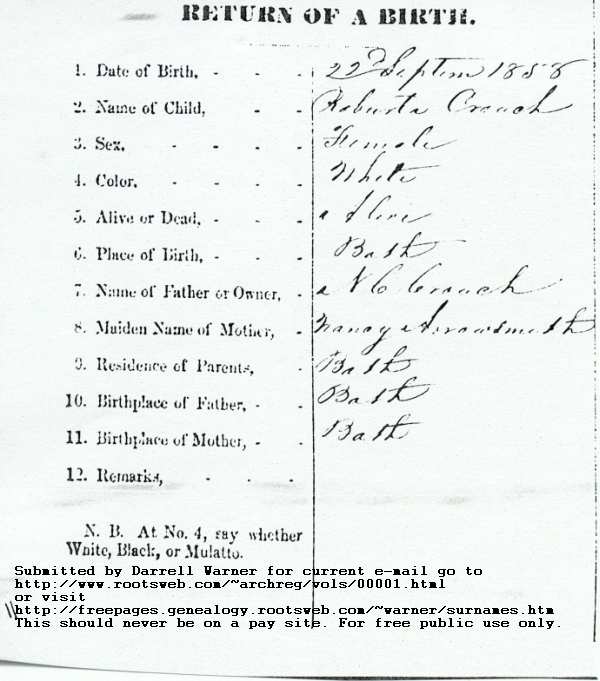 RETURN OF A BIRTH.
1. Date of Birth, - - - 22d Septem 1858
2. Name of Child, - - Roburta Crouch
3. Sex, - - - - Female
4. Color, - - - - White
5. Alive or Dead, - - - Alive
6. Place of Birth, - - - Bath
7. Name of Father or Owner, - N C Crouch
8. Maiden Name of Mother, - Nancy Arrowsmith
9. Residence of Parents, - Bath
10. Birthplace of Father, - - Bath
11. Birthplace of Mother, - - Bath
12. Remarks, - - -
N. B. At No. 4, say whether
White, Black, or Mulatto.
Submitted by Darrell Warner for current e-mail go to
http://www.rootsweb.com/~archreg/vols/00001.html
or visit
http://freepages.genealogy.rootsweb.com/~warner/surnames.htm
This should never be on a pay site. For free public use only.